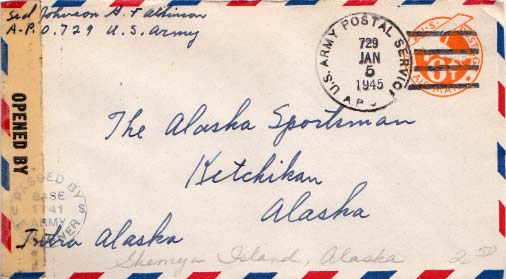 Johnson A. F Atkinson
A.P.O. 729 U.S. Army
U.S. ARMY POSTAL SERVICE
729
JAN
5
1945
A.P.O.
U.S. POSTAGE
6¢
AIR MAIL
OPENED BY
The Alaska Sportsman
Ketchikan
Alaska
PASSED BY
BASE
1141
ARMY
Intra Alaska
Shemya Island, Alaska
2 50